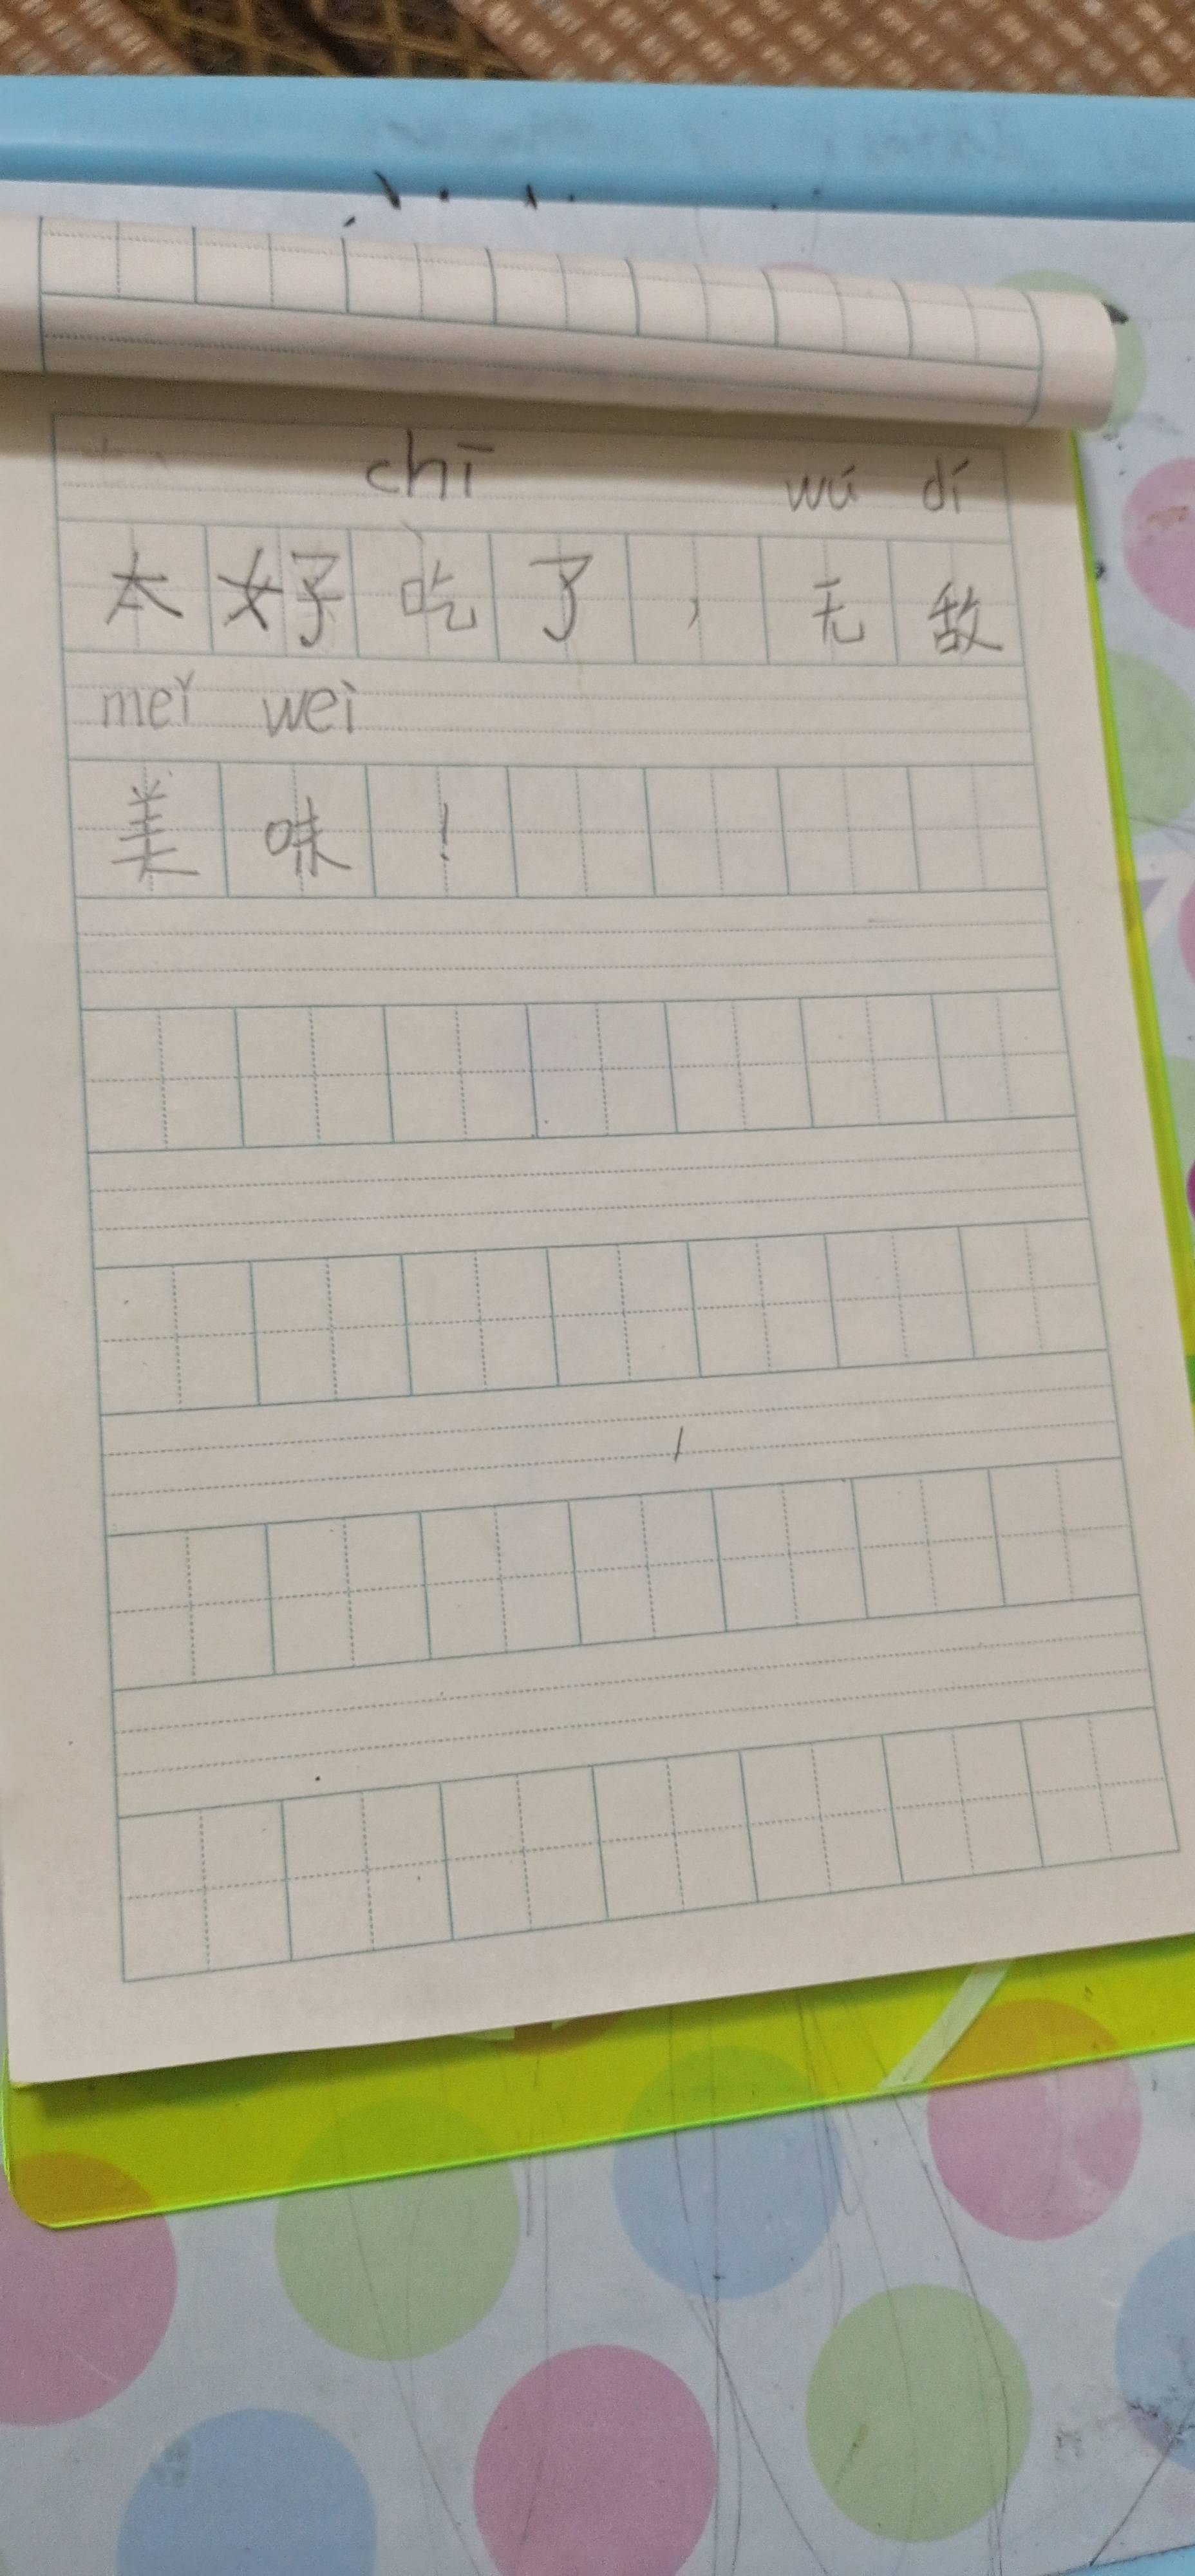 chī wú dí
太好吃了，无敌
meǐ weì
美味！